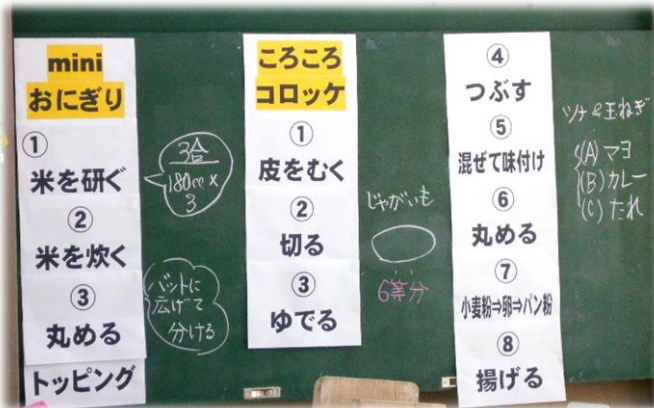 mini
おにぎり
①
米を研ぐ
②
米を炊く
③
丸める
トッピング
3合
180cc×
3
バットに
広げて
分ける
ころころ
コロッケ
①
皮をむく
②
切る
③
ゆでる
じゃがいも
6等分
④
つぶす
⑤
混ぜて味付け
⑥
丸める
⑦
小麦粉⇒卵⇒パン粉
⑧
揚げる
ツナ&玉ねぎ
(A) マヨ
(B) カレー
(C) たれ